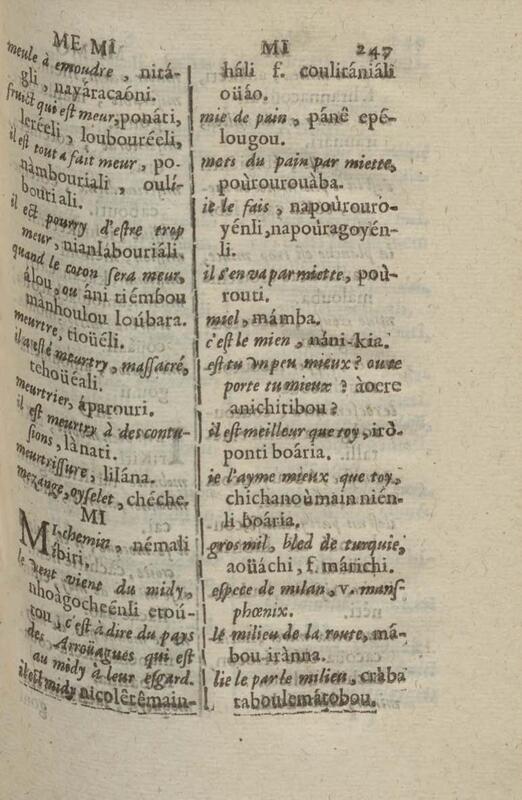 ME MÎ
meule à emoudre, nitá-
gli, nayáracaóni.
fruict qui est meur, ponáti,
leréeli, loubouréeli,
il est tout a fait meur, po-
nàmbouriali, oulí-
bouriali.
il est pourry d'estre trop
meur, nianlábouriáli.
quand le coton sera meur,
álou, ou áni tiémbou
manhoulou loúbara.
meurtre, tioüéli.
il a esté meurtry, massacré,
tehoüéali.
meurtrier, áparouri.
il est meurtry à des contu-
sions, lànati.
meurtrissure, lilána.
mezange, oyselet, chéche.
MI
MI-chemin, némali
Míbiri.
le vent vient du midy,
nhoàgocheénli etoú-
tou, c'est à dire du pays
des Arroüagues qui est
au midy à leur esgard.
il est midy nicolêtêmain-
MI 247
háli f. coulitániáli
oüáo.
mie de pain, pánê epé-
lougou.
mets du pain par miette,
poùrourouàba.
ie le fais, napoùrouro-
yénli, napoùragoyén-
li.
il s'en va par miette, poù-
routi.
miel, mámba.
c'est le mien, náni-kia.
es tu vn peu mieux? ou te
porte tu mieux? àocre
anichitibou?
il est meilleur que toy, irò-
ponti boária.
ie l'ayme mieux que toy,
chichanoùmain nién-
li boária.
gros mil, bled de turquie,
aoüáchi, f. márichi.
espece de milan, v. mans-
phœnix.
le milieu de la route, má-
bou irànna.
lie le par le milieu, cràba
taboulemátobou.